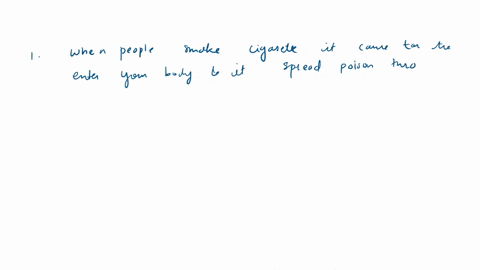 1. when people smoke cigarete it cause tar the
enter your body & it spread poison thro